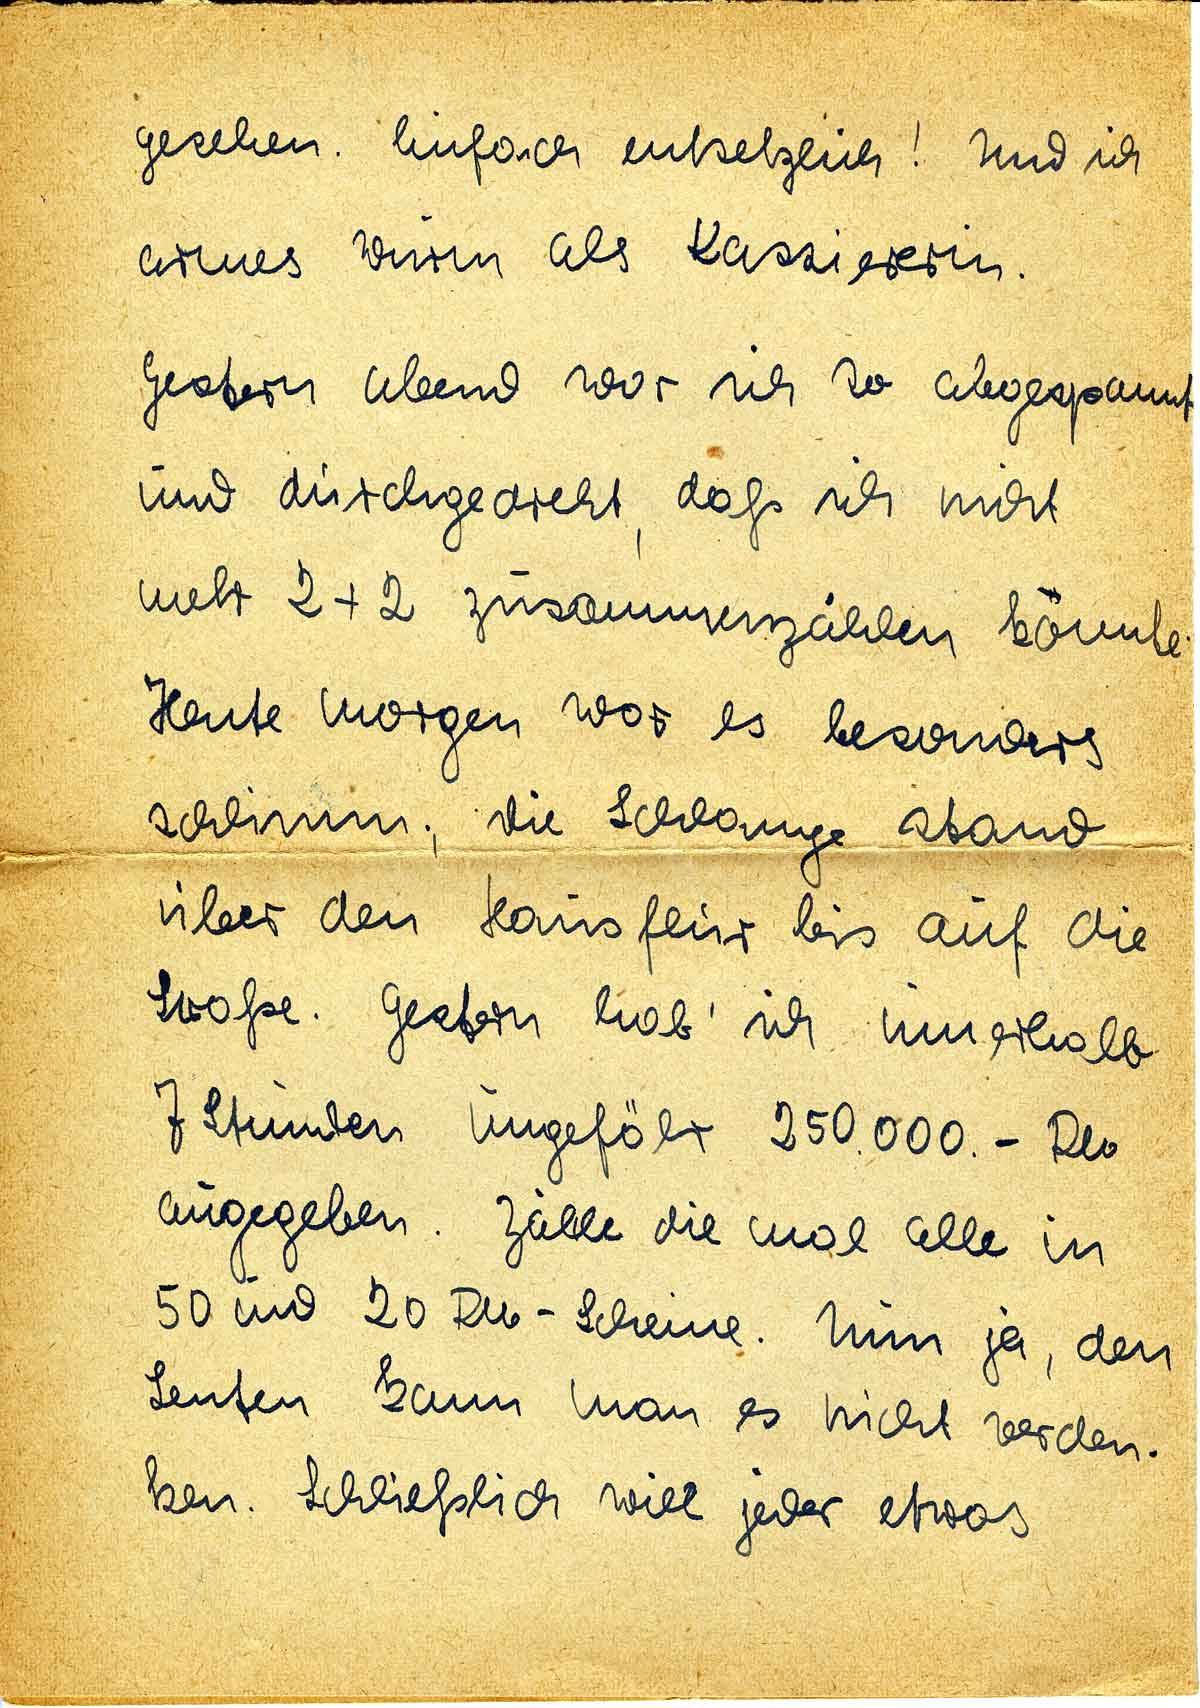 gesehen. Einfach entsetzlich! Und ich
armes Wurm als Kassiererin.
Gestern abend war ich so abgespannt
und durchgedreht, daß ich nicht
mehr 2+2 zusammenzählen könnte.
Heute morgen war es besonders
schlimm; die Schlange stand
über den Hausflur bis auf die
Straße. Gestern hab' ich innerhalb
7 Stunden ungefähr 250.000.- RM
ausgegeben. Zähle die mal alle in
50 und 20 RM-Scheine. Nun ja, den
Leuten kann man es nicht verden-
ken. Schließlich will jeder etwas